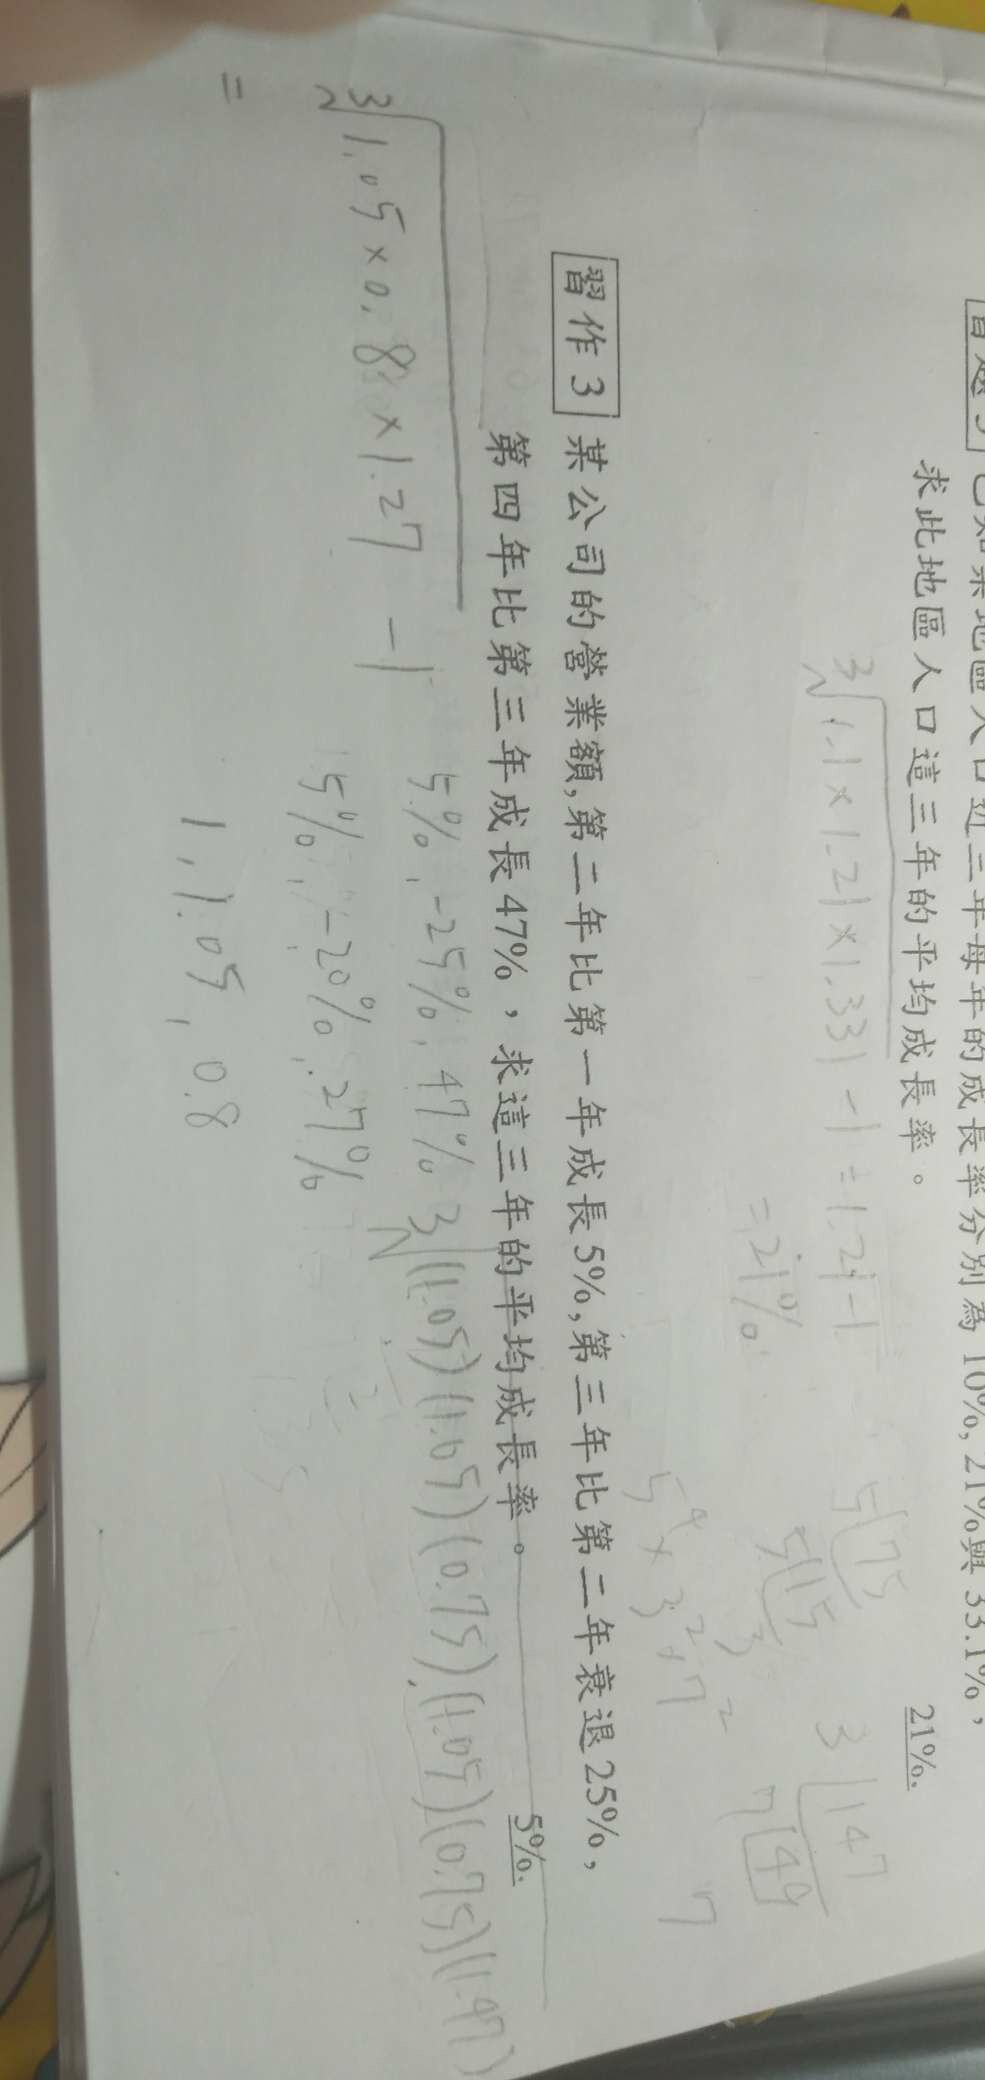 已知某地區人口近三年每年的成長率分別為 10%, 21%與 33.1%,
求此地區人口這三年的平均成長率。
21%.
∛1.1×1.21×1.331 -1 = 1.21-1
=21%
5⌊75
5⌊15
3
3⌊147
7⌊49
7
5⁴×3²×7²
習作3 某公司的營業額,第二年比第一年成長5%,第三年比第二年衰退25%,
第四年比第三年成長47%,求這三年的平均成長率。
5%.
5%, -25%, 47%
∛(1.05)(1.05)(0.75)(1.05)(0.75)(1.47)
∛1.05×0.8×1.27 -1
5%, -20%, 27%
1, 1.05, 0.8
=